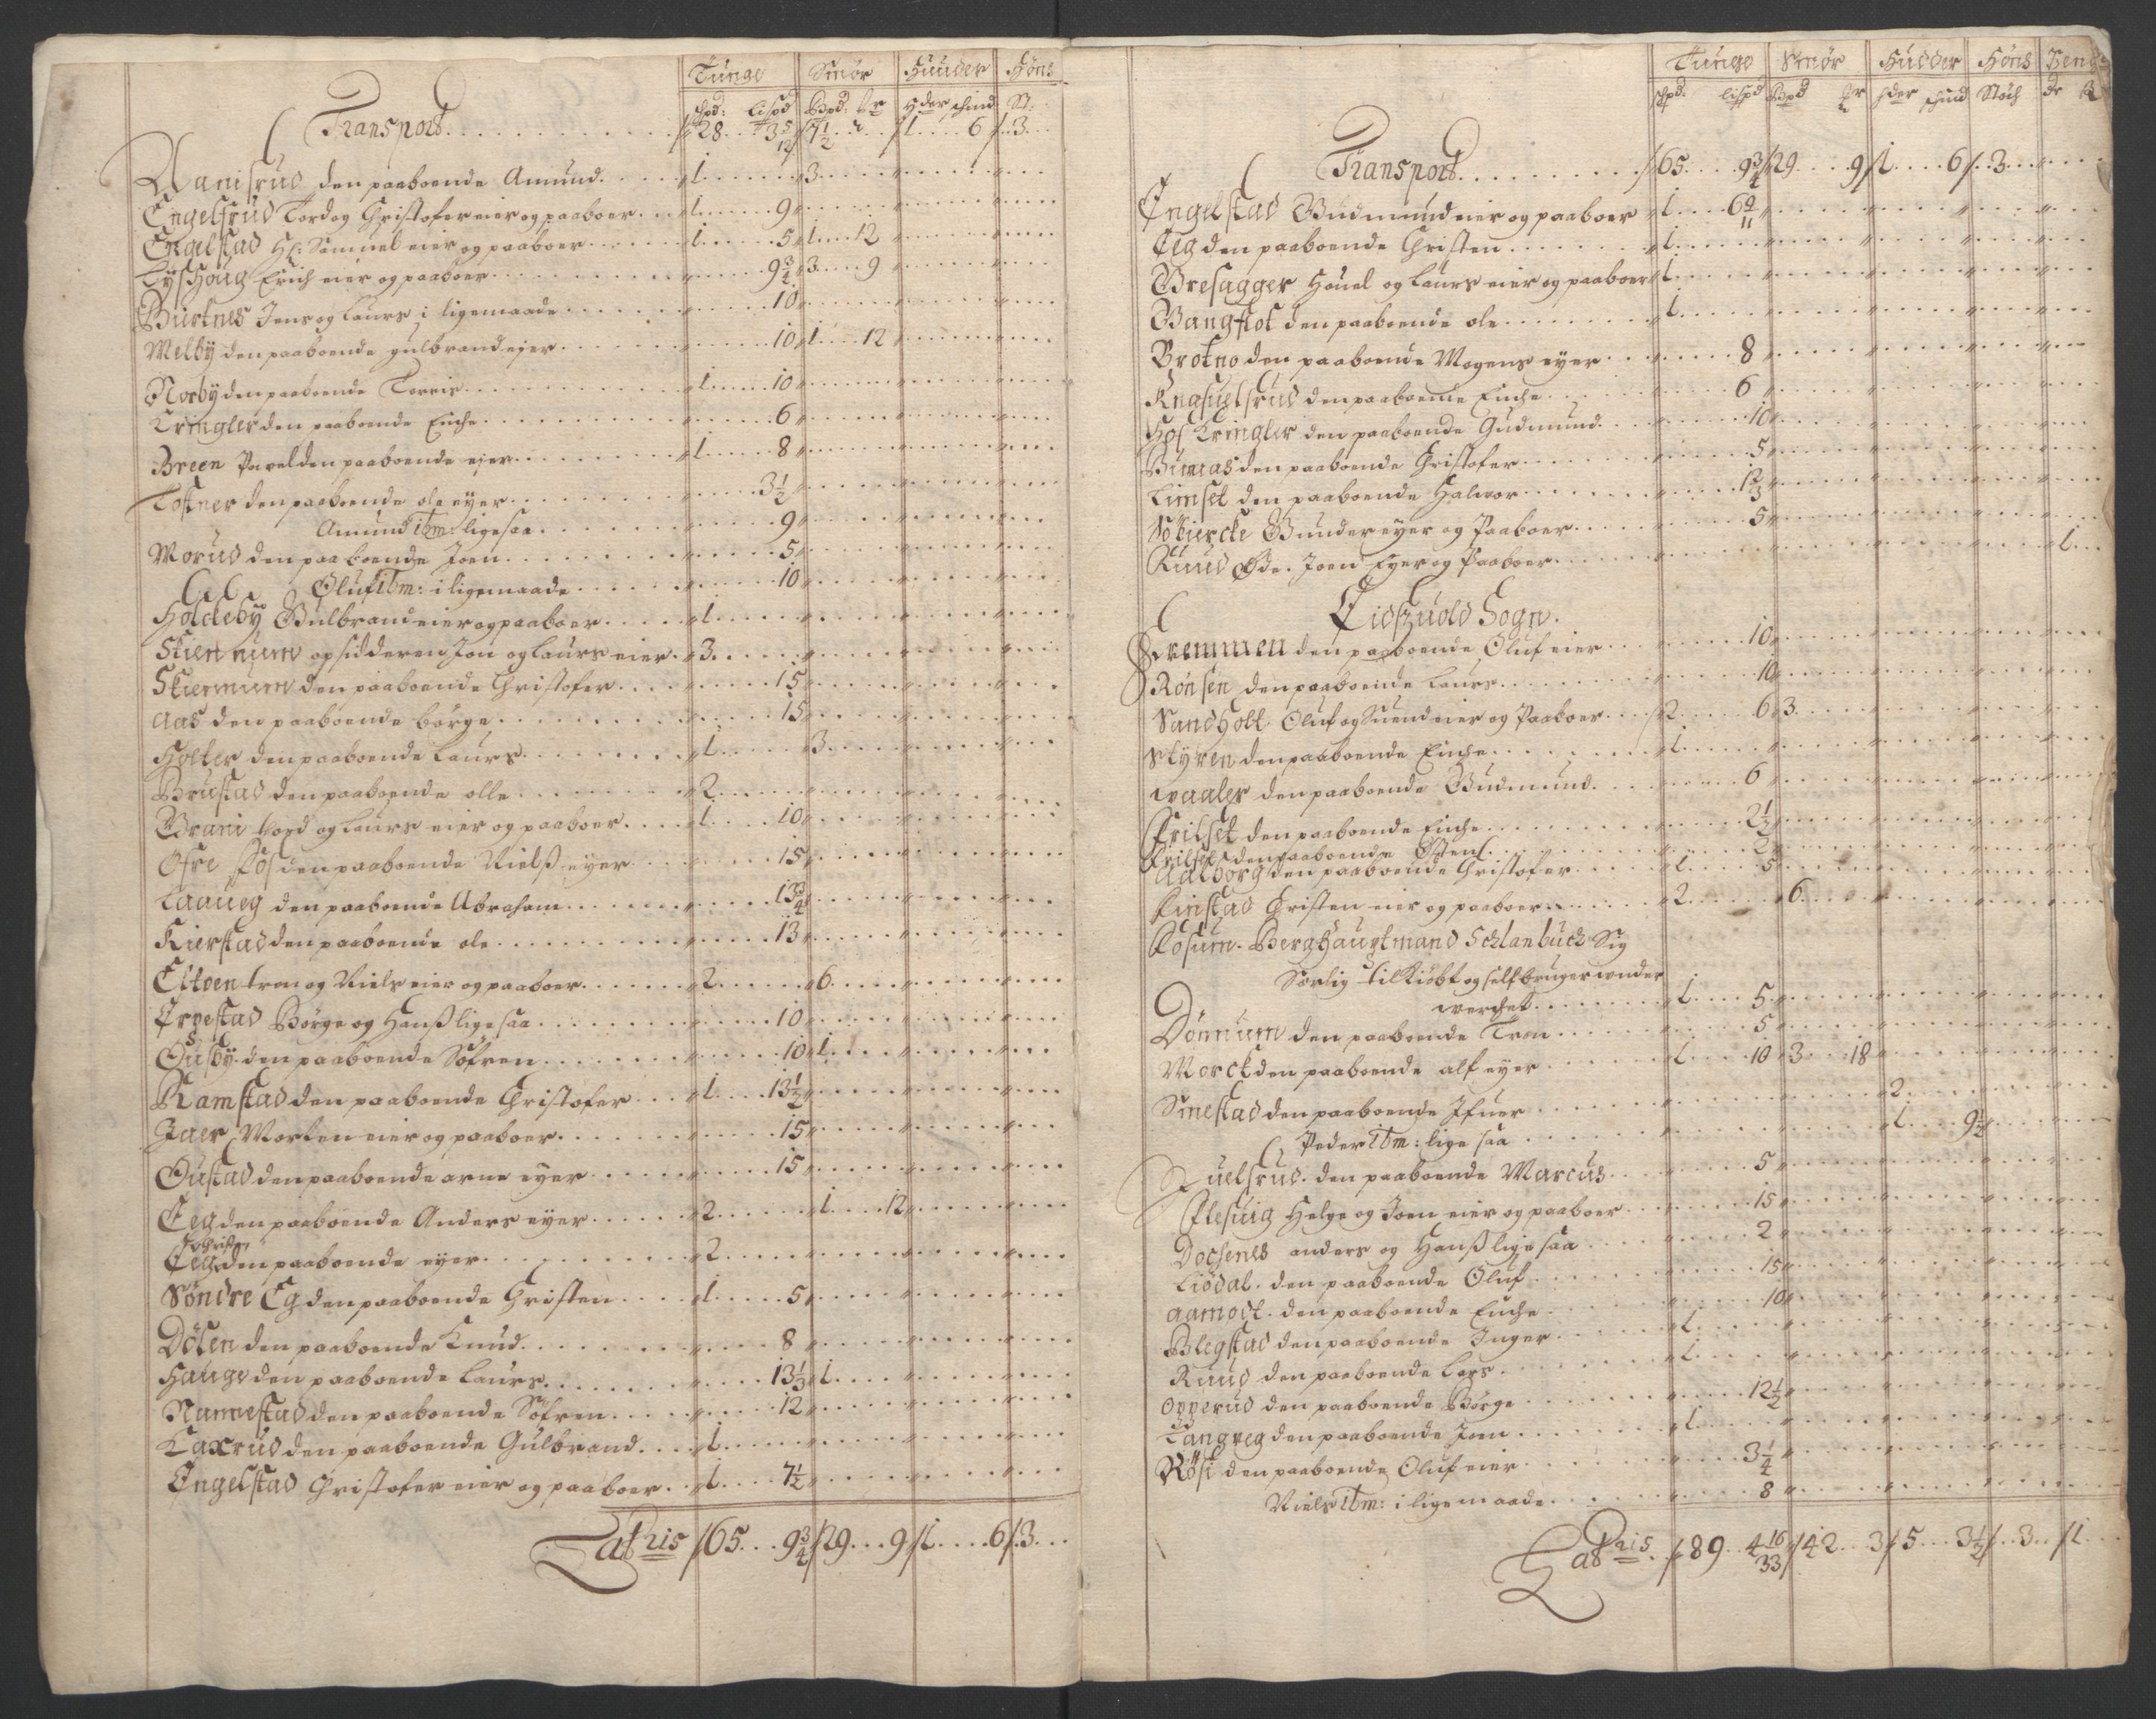 Tunge Smør Huuder Høns
schpd: lispd Bpd: [?]r Hder schind St:
Transport 28 3 5/12 7 1/2 1 6 3
den paaboende Amund 1 3
Engelsrud Tord og Christofer eier og paaboer 1 9
Engelstad Hr: Samuel eier og paaboer 1 5 1 12
Lyshoug Erich eier og paaboer 9 3/4 3 9
Biertnes Jens og Laurs i ligemaade 10
Melby den paaboende gulbrand ejer 10 1 12
Norby den paaboende Torris 1 10
Kringler den paaboende Enche 6
Breen Povel den paaboende ejer 1 8
Tostner den paaboende ole eyer 3 1/2
Amund ibm: ligesaa 9
Morud den paaboende Joen 5
Oluf ibm: i ligemaade 10
Holcheby Gulbrand eier og paaboer 1
Skiennum opsidderen Jon og Laurs eier 3
Skiennum den paaboende Christofer 15
Aas den paaboende børge 15
Holter den paaboende Laurs 1 3
Brustad den paaboende olle 2
Brani Tord og Laurs eier og paaboer 1 10
Øfre Fos den paaboende Nielß eyer 15
Laaueg den paaboende Abraham 13 3/4
Kierstad den paaboende ole 13
Eltoen tron og Niels eier og paaboer 2 6
Børge og Hanß lige saa 10
Ousby den paaboende Søfren 10 1
Ramstad den paaboende Christofer 1 13 1/2
Jaer Morten eier og paaboer 15
Oustad den paaboende arne eyer 15
Eeg den paaboende Anders eyer 2 1 12
Christen
Eeg den paaboende eyer 2
Søndre Eg den paaboende Christen 1 5
Dølen den paaboende Knud 8
Hauge den paaboende Laurs 13 1/3 1
Nannestad den paaboende Søfren 12
Laxrud den paaboende Gulbrand 1
Engelstad Christofer eier og paaboer 1 7 1/2
Latris 65 9 3/4 29 9 1 6 3
Tunge Smør Hudder Høns Penge
schpd: lispd Bpd hder schind Stöch
Transport 65 9 3/4 29 9 1 6 3
Engelstad Gudmund eier og paaboer 1 6 9/11
Eeg den paaboende Christen 1
Bresagger Houel og Laurs eier og paaboer 1
Bangflot den paaboende ole 1
Brotno den paaboende Mogens eyer 8
den paaboende Enche 6
Kringler den paaboende Gudmund 10
den paaboende Christofer 5
Limset den paaboende Halwor 1 2/3
Søbiercke Gunder eyer og Paaboer 5
Ruud Øde. Joen Eyer og Paaboer 1
Eidßuold Sogn.
Fremmen den paaboende Oluf eier 10
Rønsen den paaboende Laurs 10
Sandholt Oluf og Suend eier og Paaboer 2 6 3
Styren den paaboende Enche 1
Waaler den paaboende Gudmund 6
Frilset den paaboende Enche 2 1/2
Frilset den paaboende Østen 2
Aalborg den paaboende Christofer 1 5
Finstad Christen eier og paaboer 2 6
Føsum. Berghauptmand Schlanbuch Sig
Særlig tilkiøbt og self bruger under
werchet 1 5
Dønnum den paaboende Tron 5
Morck den paaboende alf eyer 1 10 3 18
Smestad den paaboende Ifuer 2
Peder ibm: lige saa 1 9 1/2
den paaboende Marcus 5
Flesuig Helge og Joen eier og paaboer 15
Docsenes anders og Hanß lige saa 2
Liødal. den paaboende Oluf 15
aamodt. den paaboende Enche 10
Blegstad den paaboende Inger 1
Ruud den paaboende Lars 1
Opperud den paaboende Børge 12 1/2
Tangveg den paaboende Joen 1
Røsi den paaboende Oluf eier 3 1/4
Niels ibm: i ligemaade 8
Latris 89 4 16/33 42 3 5 3 1/2 3 1